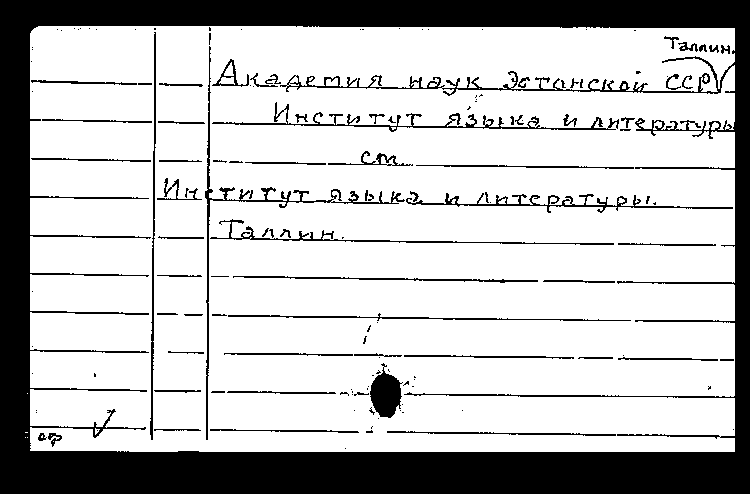 Таллин.
Академия наук Эстонской ССР
Институт языка и литературы
см.
Институт языка и литературы.
Таллин.